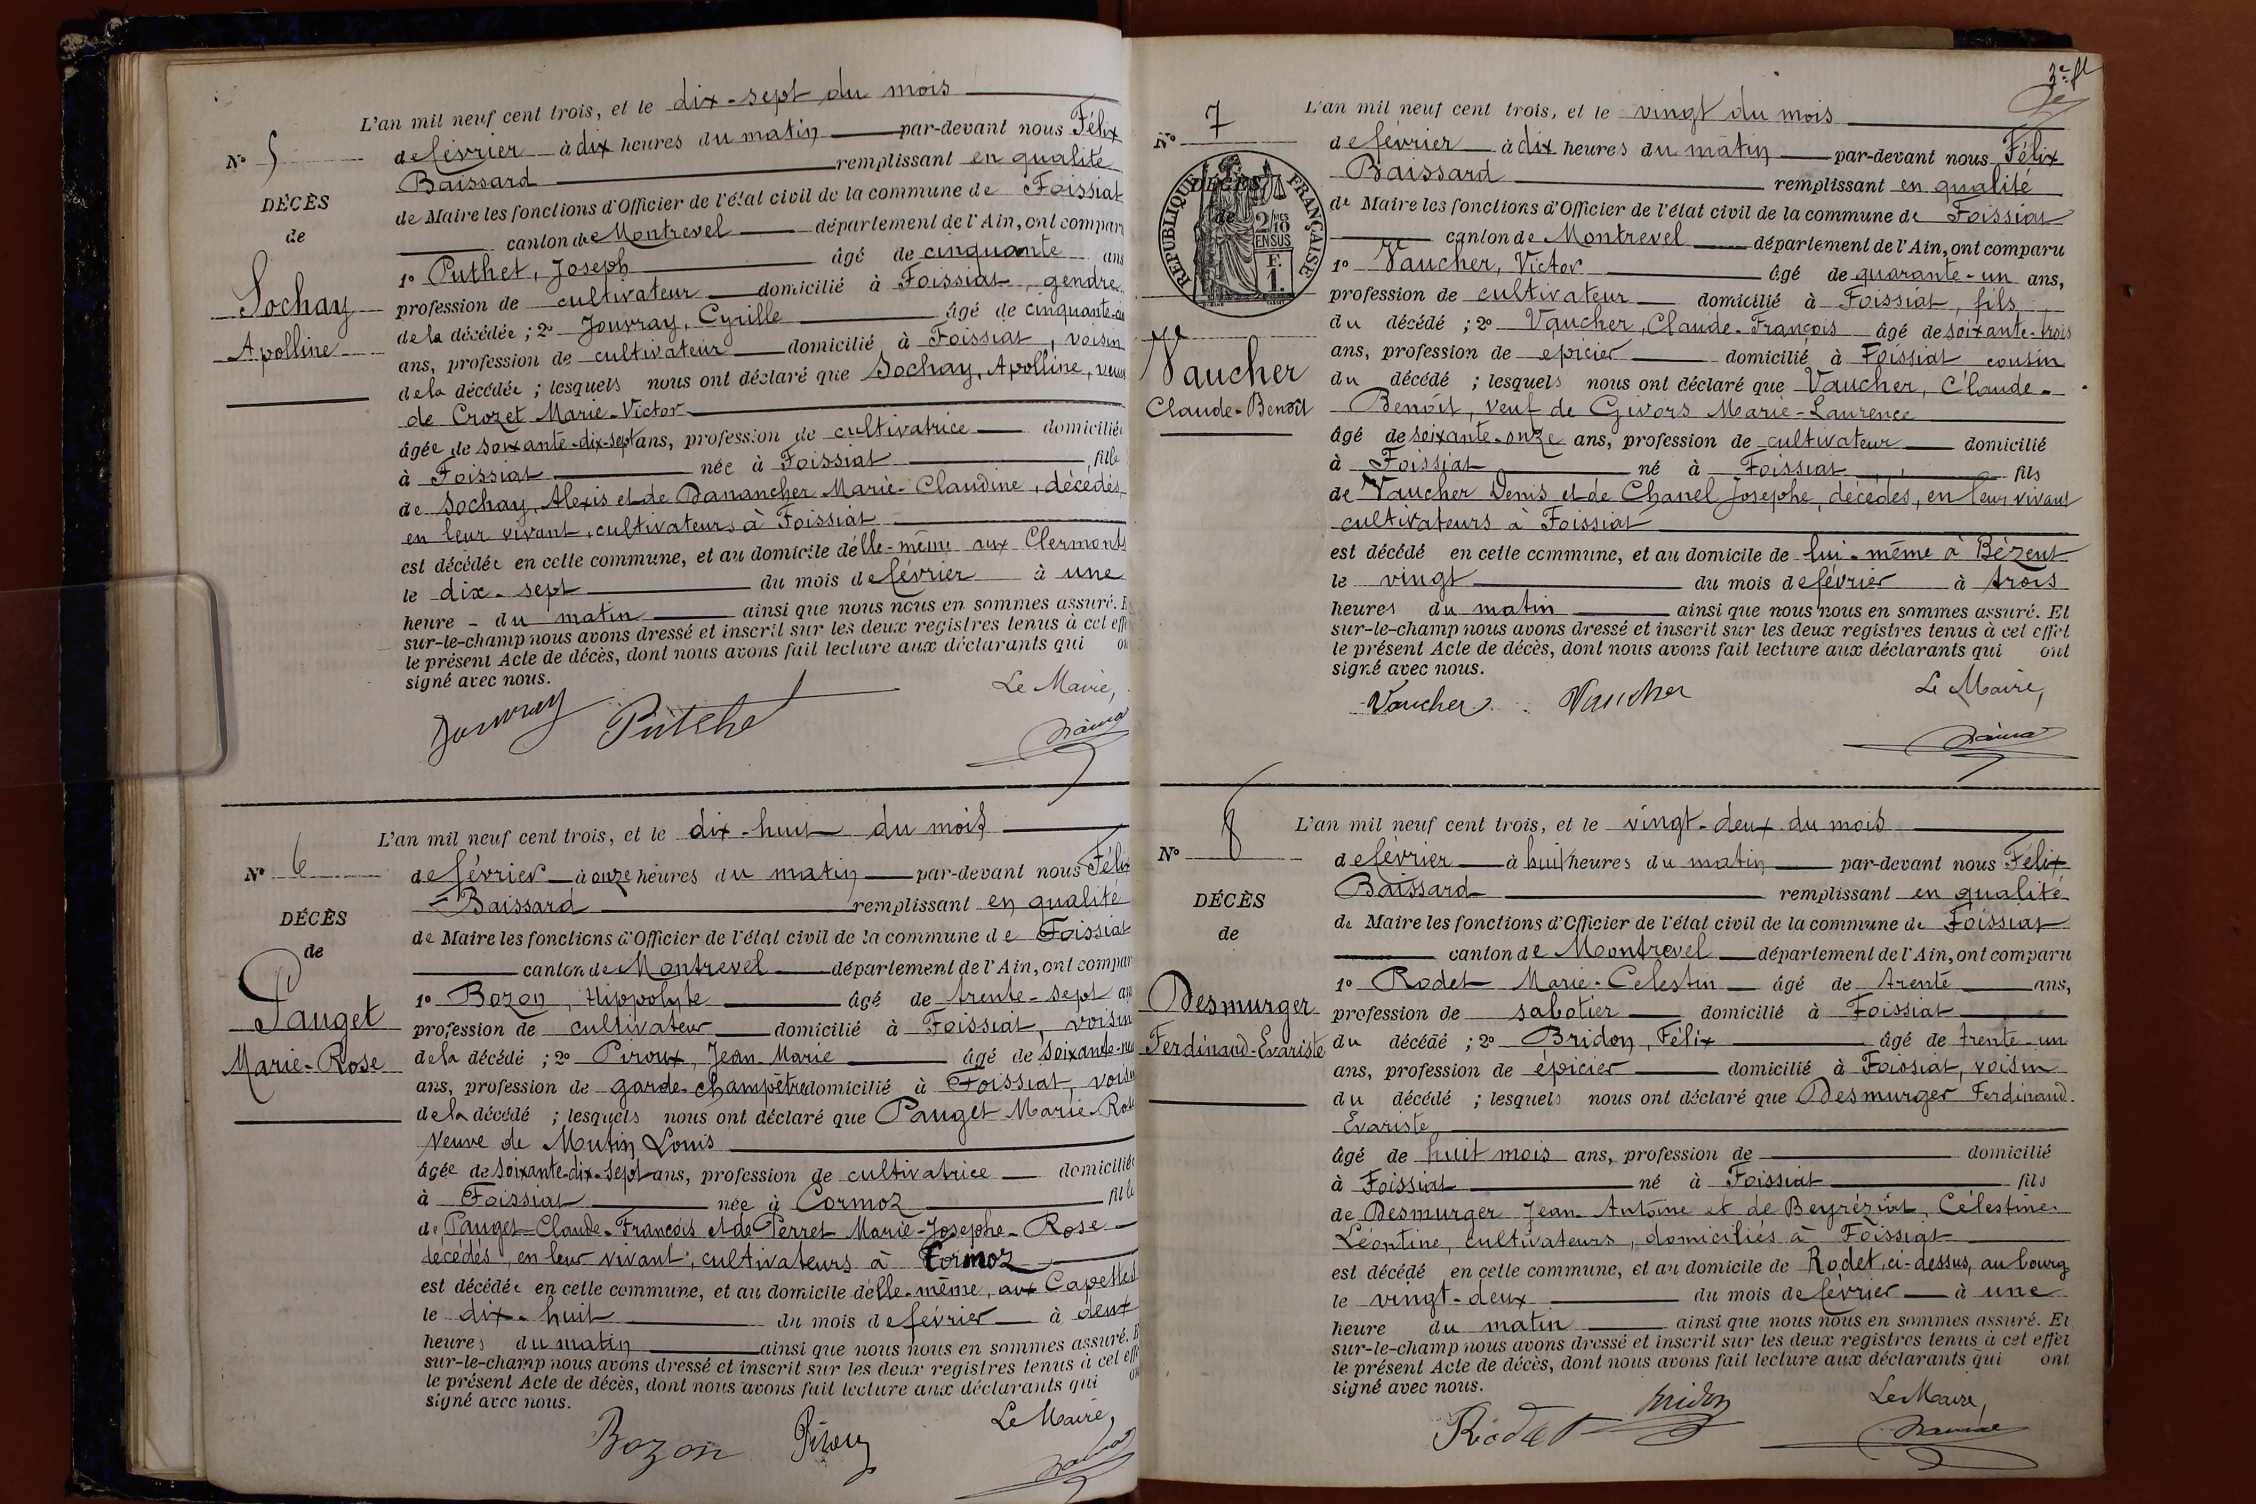 L'an mil neuf cent trois, et le dix-sept du mois
N° 5
de février à dix heures du matin par-devant nous Félix
Baissard remplissant en qualité
DÉCÈS
de Maire les fonctions d'Officier de l'état civil de la commune de Foissiat
de
canton de Montrevel département de l'Ain, ont compar
1° Puthet, Joseph âgé de cinquante ans
Sochay
profession de cultivateur domicilié à Foissiat, gendre
de la décédée ; 2° Jouvray, Cyrille âgé de cinquante-
Apolline
ans, profession de cultivateur domicilié à Foissiat, voisin
de la décédée ; lesquels nous ont déclaré que Sochay, Apolline, veuve
de Crozet Marie-Victor
âgée de soixante-dix-sept ans, profession de cultivatrice domiciliée
à Foissiat née à Foissiat fille
de Sochay, Alexis et de Danancher Marie-Claudine, décédés,
en leur vivant, cultivateurs à Foissiat
est décédée en cette commune, et au domicile d'elle-même aux Clermonts
le dix-sept du mois de février à une
heure du matin ainsi que nous nous en sommes assuré. E
sur-le-champ nous avons dressé et inscrit sur les deux registres tenus à cet eff
le présent Acte de décès, dont nous avons fait lecture aux déclarants qui on
signé avec nous.
Le Maire,
Jouvray Puthet
L'an mil neuf cent trois, et le dix-huit du mois
N° 6
de février à onze heures du matin par-devant nous Félix
Baissard remplissant en qualité
DÉCÈS
de Maire les fonctions d'Officier de l'état civil de la commune de Foissiat
de
canton de Montrevel département de l'Ain, ont compar
1° Bozon, Hippolyte âgé de trente-sept ans
Pauget
profession de cultivateur domicilié à Foissiat, voisin
Marie-Rose
de la décédé ; 2° Piroux, Jean-Marie âgé de soixante-
ans, profession de garde-champêtre domicilié à Foissiat, voisin
de la décédé ; lesquels nous ont déclaré que Pauget Marie-Rose
Veuve de Mutin Louis
âgée de soixante-dix-sept ans, profession de cultivatrice domiciliée
à Foissiat née à Cormoz fille
de Pauget Claude-François et de Perret Marie-Josephe-Rose
décédés, en leur vivant, cultivateurs à Cormoz
est décédée en cette commune, et au domicile d'elle-même, aux Capettes
le dix-huit du mois de février à deux
heures du matin ainsi que nous nous en sommes assuré. E
sur-le-champ nous avons dressé et inscrit sur les deux registres tenus à cet effe
le présent Acte de décès, dont nous avons fait lecture aux déclarants qui on
signé avec nous.
Le Maire,
Bozon Piroux
3e fl
L'an mil neuf cent trois, et le vingt du mois
N° 7
de février à dix heures du matin par-devant nous Félix
Baissard remplissant en qualité
RÉPUBLIQUE FRANÇAISE
DÉCÈS
de
2/10 MES
EN SUS
F.
1.
de Maire les fonctions d'Officier de l'état civil de la commune de Foissiat
canton de Montrevel département de l'Ain, ont comparu
1° Vaucher, Victor âgé de quarante-un ans,
profession de cultivateur domicilié à Foissiat, fils
du décédé ; 2° Vaucher, Claude-François âgé de soixante-trois
Vaucher
ans, profession de épicier domicilié à Foissiat cousin
du décédé ; lesquels nous ont déclaré que Vaucher, Claude-
Claude-Benoît
Benoît, veuf de Givors Marie-Laurence
âgé de soixante-onze ans, profession de cultivateur domicilié
à Foissiat né à Foissiat fils
de Vaucher Denis et de Chanel Josephe, décédés, en leur vivant
cultivateurs à Foissiat
est décédé en cette commune, et au domicile de lui-même à Bézent
le vingt du mois de février à trois
heures du matin ainsi que nous nous en sommes assuré. Et
sur-le-champ nous avons dressé et inscrit sur les deux registres tenus à cet effet
le présent Acte de décès, dont nous avons fait lecture aux déclarants qui ont
signé avec nous.
Le Maire,
Vaucher Vaucher
L'an mil neuf cent trois, et le vingt-deux du mois
N° 8
de février à huit heures du matin par-devant nous Félix
Baissard remplissant en qualité
DÉCÈS
de Maire les fonctions d'Officier de l'état civil de la commune de Foissiat
de
canton de Montrevel département de l'Ain, ont comparu
1° Rodet Marie-Celestin âgé de trente ans,
Desmurger
profession de sabotier domicilié à Foissiat
Ferdinand-Evariste
du décédé ; 2° Bridon, Félix âgé de trente-un
ans, profession de épicier domicilié à Foissiat, voisin
du décédé ; lesquels nous ont déclaré que Desmurger Ferdinand-
Evariste,
âgé de huit mois ans, profession de domicilié
à Foissiat né à Foissiat fils
de Desmurger Jean Antoine et de Beyréziat, Célestine-
Léontine, cultivateurs, domiciliés à Foissiat
est décédé en cette commune, et au domicile de Rodet, ci-dessus, au bourg
le vingt-deux du mois de février à une
heure du matin ainsi que nous nous en sommes assuré. Et
sur-le-champ nous avons dressé et inscrit sur les deux registres tenus à cet effet
le présent Acte de décès, dont nous avons fait lecture aux déclarants qui ont
signé avec nous.
Le Maire,
Rodet Bridon